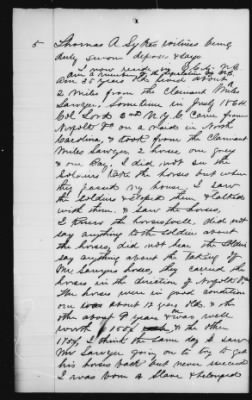 5 Thomas A Sykes witness being
duly sworn deposes & says
I now reside in N.C.
am a member of the
am 35 years old lived about
2 miles from the Claimant Miles
Sawyer. Sometime in July 1864
Col Lord 2nd N.Y.C. Came from
Norfolk Va on a raid in North
Carolina, & took from the Claimant
Miles Sawyer 2 horses, one grey
& one Bay, I did not see the
Soldiers take the horses but when
they passed my house I saw
the Soldiers & stoped them & talked
with them. I saw the horses,
I knew the horses, did not
say anything to the soldiers about
the horses, did not hear the Soldiers
say anything about the taking of
Mr Sawyers horses, they carried the
horses in the direction of Norfolk Va
The horses were in good condition
one was about 12 years old. & the
other about 9 years & was well
worth 150$ & the other
175$, I think the same day I saw
Mr Sawyer going on to try to get
his horses back but never succeed
I was born a Slave & belonged